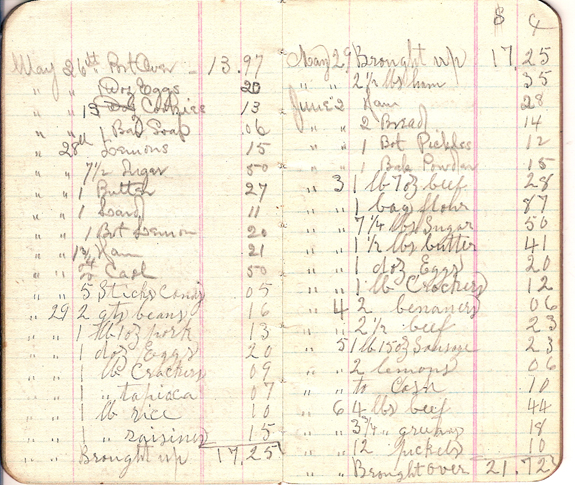 May 26th Bot Over - 13.97
" " 1 Doz Eggs 20
" " 13 Cookies 13
" " 1 Bar Soap .06
" 28th Lemons 15
" " 7 1/2 Sugar 50
" " 1 Butter 27
" " 1 Lard 11
" " 1 Bot Lemon 20
" " Ham 21
" " to Cash 50
5 Sticks Candy 05
" 29 2 qts beans 16
" " 1 lb 1 oz pork 13
" " 1 doz Eggs 20
" " 1 lb Crackers 09
" " 1 " tapioca 07
" " 1 lb rice 10
" " 1 " raisines 15
" " Brought up 17.25
$ ¢
May 29 Brought up 17.25
" " 2 1/2 lbs ham 35
June 2 Ham 28
" " 2 Bread 14
" " 1 Bot Pickles 12
" " 1 Bak Powder 15
" 3 1 lb 7 oz beef 28
" " 1 bag flour 87
" " 7 1/4 lbs Sugar 50
" " 1 1/2 lbs butter 41
" " 1 doz Eggs 20
" " 1 lb Crackers 12
" 4 2 bananers 06
" " 2 1/2 beef 23
" 5 1 lb 15 oz Sausage 23
" " 2 lemons 06
" " to Cash 10
" 6 4 lbs beef 44
" " 3 3/4 " greens 18
" " 12 pickels 10
" " Brought over 21.72